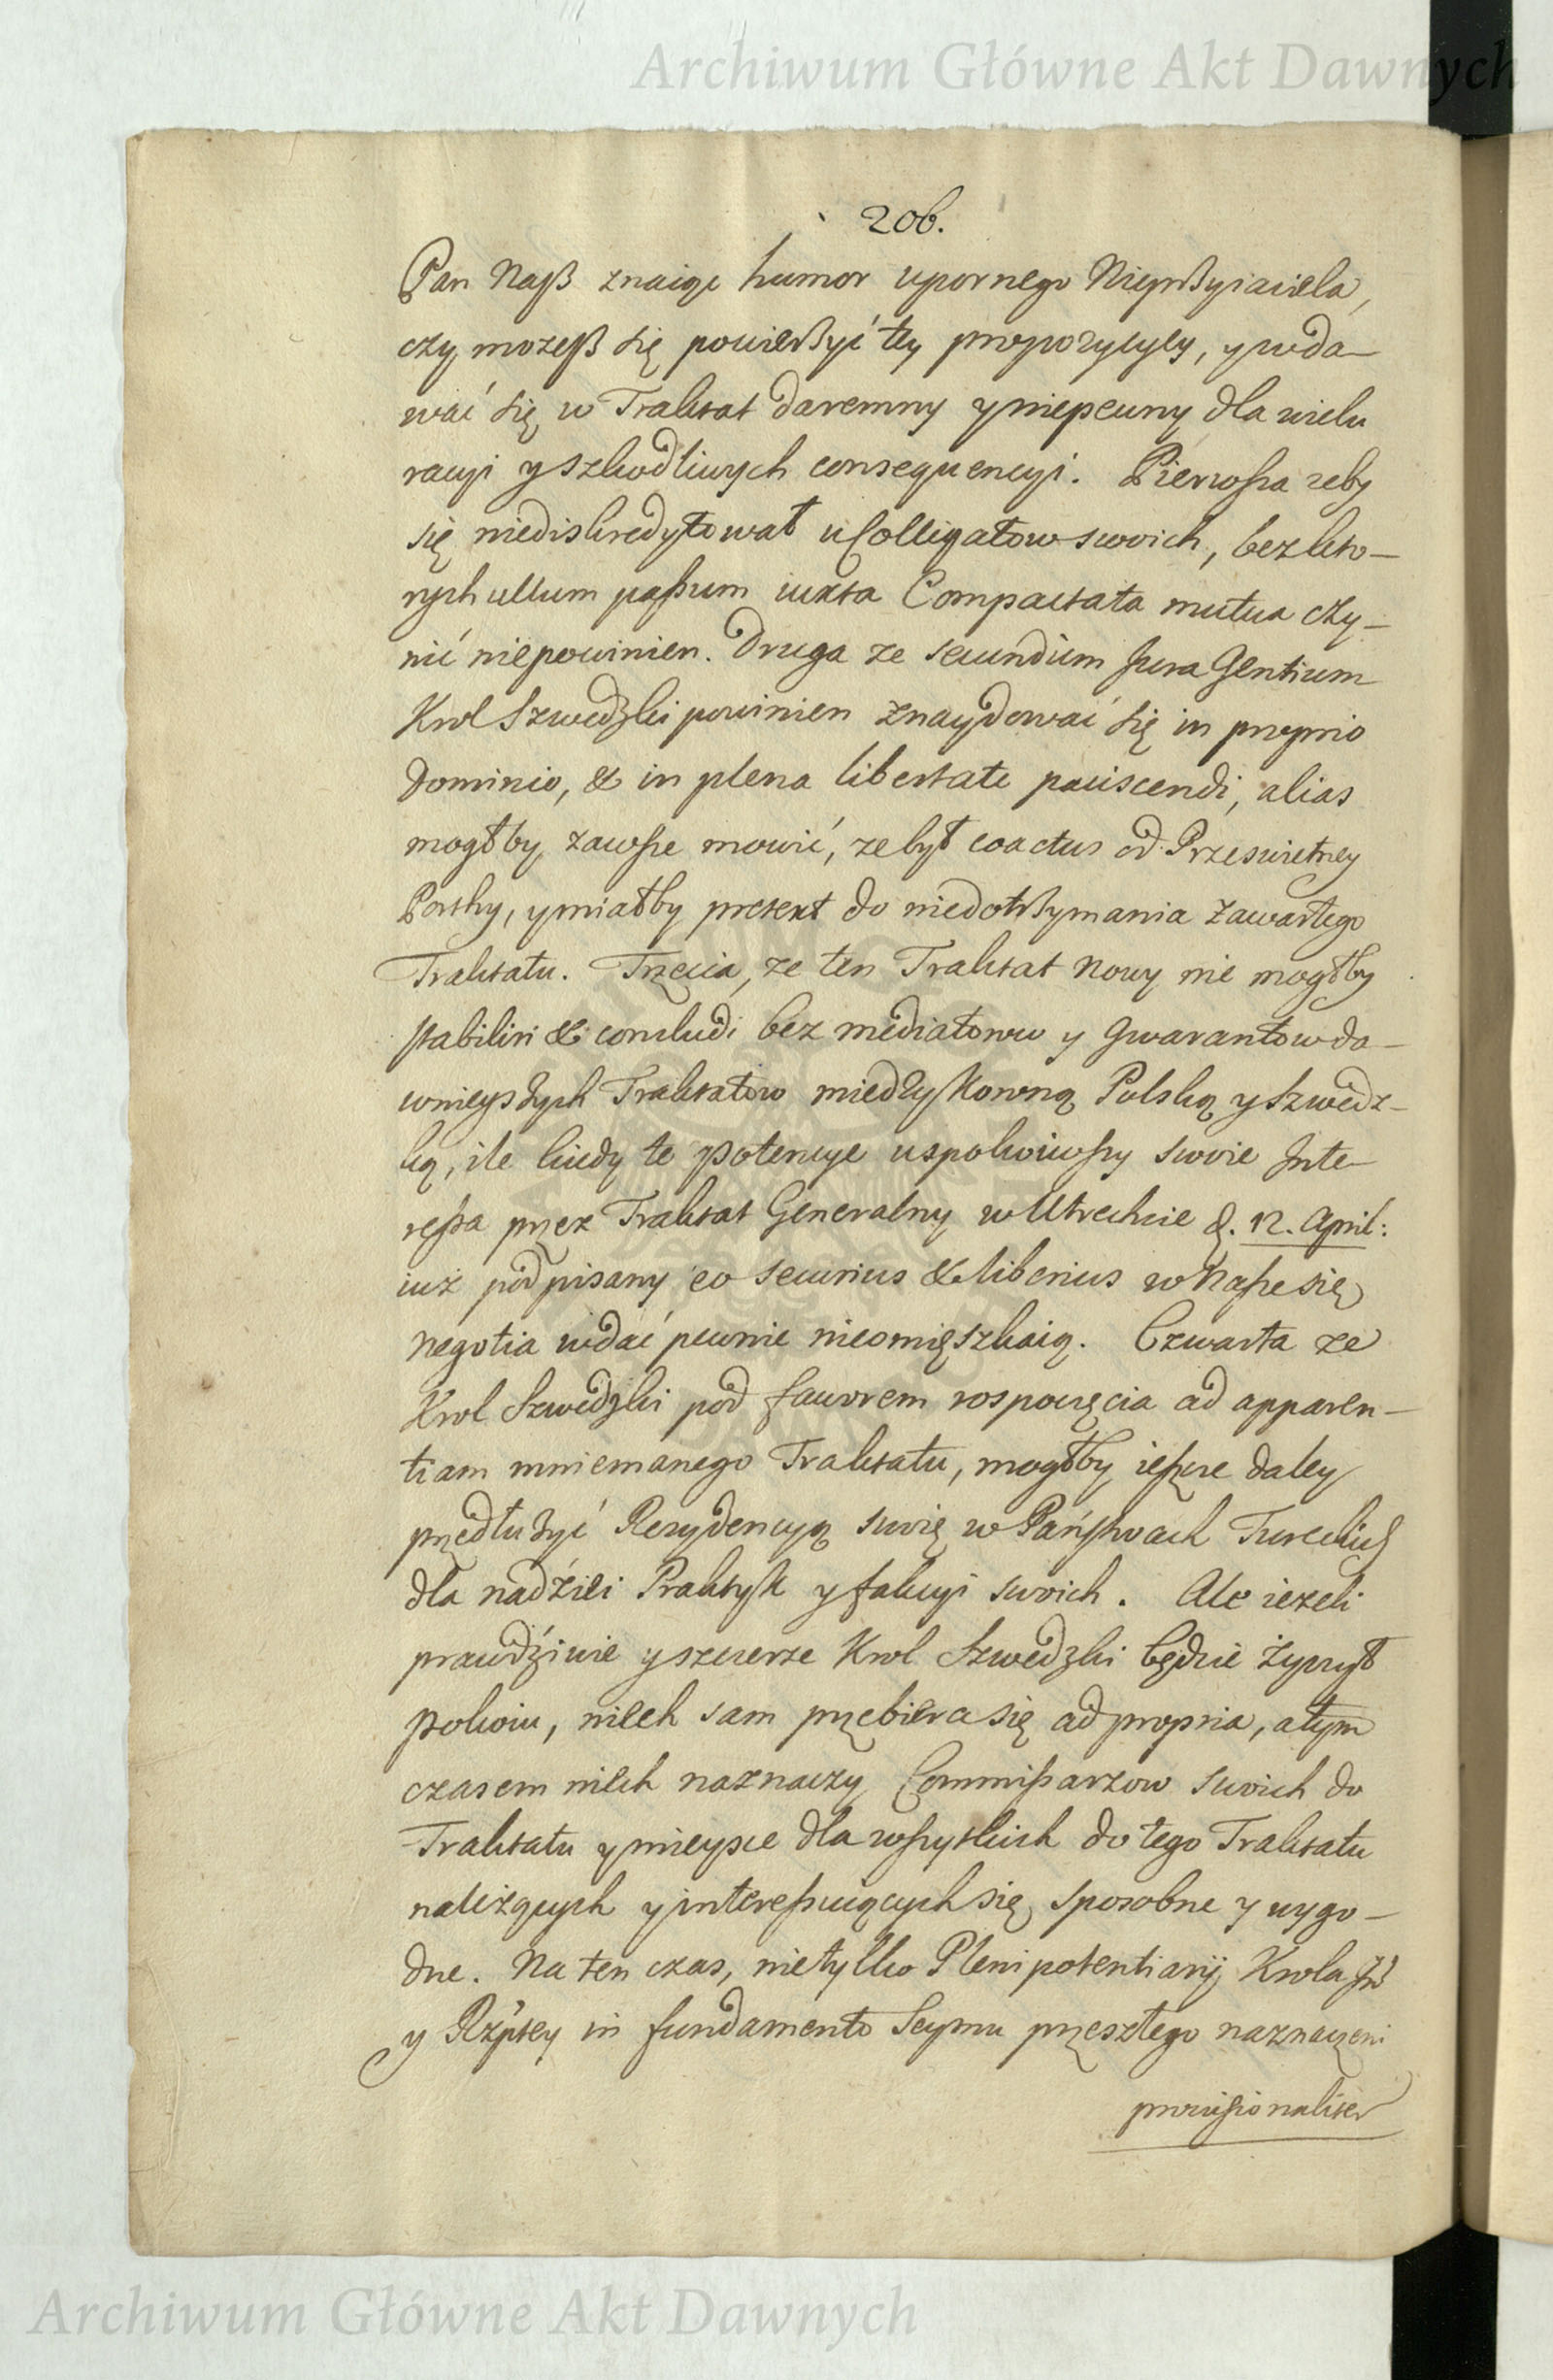 Archiwum Główne Akt Dawnych
206.
Pan Naß znaiąc humor upornego Nieprzyiaciela,
czy możeß się powierzyć tey propozycyey, y wda-
wać się w Traktat daremny y niepewny dla wielu
racyi y szkodliwych consequencyi. Pierwsza zeby
się niediskredytował u Colligatow swoich, bez kto-
rych ullum passum iuxta Compactata mutua czy-
nić niepowinien. Druga ze secundum Jura Gentium
Krol Szwedzki powinien znaydować się in proprio
Dominio, & in plena libertate paciscendi, alias
mogłby zawsze mowić, ze był coactus od Przeswietney
Portky, y miałby pretext do niedotrzymania zawartego
Traktatu. Trzecia, ze ten Traktat Nowy nie mogłby
stabiliri & concludi bez mediatorow y Gwarantow da-
wnieyszych Traktatow między Koroną Polską y Szwedz-
ką, ile kiedy te Potencye uspokoiwszy swoie Inte-
ressa przez Traktat Generalny w Utrechcie d. 12. April:
iuż podpisany eo securius & liberius w Nasze się
negotia wdać pewnie nieomięszkaią. Czwarta ze
Krol Szwedzki pod faworem rospoczęcia ad apparen-
tiam mniemanego Traktatu, mogłby ieszcze daley
przedłużyć Rezydencyą swoię w Państwach Tureckich
dla nadźiei Praktyk y fakcyi swoich. Ale ieżeli
prawdźiwie y szczerze Krol Szwedzki będzie życzył
Pokoiu, niech sam przebiera się ad propria, a tym
czasem niech naznaczy Commissarzow swoich do
Traktatu y mieysce dla wszystkich do tego Traktatu
należących y interessuiących się sposobne y wygo-
dne. Na ten czas, nietylko Plenipotentiarij Krola Jmći
y Rzptey in fundamento Seymu przeszłego naznaczeni
provisionaliter
Archiwum Główne Akt Dawnych